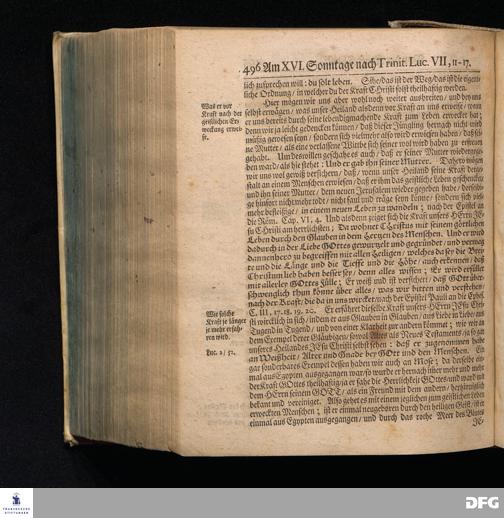 496 Am XVI. Sonntage nach Trinit. Luc. VII, 11-17.
lich zusprechen will: du solt leben. Sehe/ das ist der Weg/ das ist die eigent-
liche Ordnung/ in welcher du der Kraft Christi solst theilhaftig werden.
Hier mögen wir uns aber wohl noch weiter ausbreiten/ und bey uns
selbst erwägen/ was unser Heiland als denn vor Kraft an uns erweise/ wenn
er uns bereits durch seine lebendigmachende Kraft zum Leben erwecket hat;
denn wir ja leicht gedencken können/ daß dieser Jüngling hernach nicht wird
müßig gewesen seyn/ sondern sich vielmehr also wird erwiesen haben/ daß sei-
ne Mutter/ als eine verlassene Wittbe sich seiner wol wird haben zu erfreuen
gehabt. Um deswillen geschahe es auch/ daß er seiner Mutter wiedergege-
ben ward/ als hie stehet: Und er gab ihn seiner Mutter. Dahero mögen
wir uns vol gewiß versichern/ daß/ wenn unser Heiland seine Kraft derge-
stalt an einem Menschen erwiesen/ daß er ihm das geistliche Leben geschencket/
und ihn seiner Mutter/ dem neuen Jerusalem wieder gegeben habe/ derselbi-
ge hinfort nicht mehr todt/ nicht faul und träge seyn könne/ sondern sich viel-
mehr befleißige/ in einem neuen Leben zu wandeln; nach der Epistel an
die Röm. Cap. VI, 4. Und alsdenn zeiget sich die Kraft unsers HErrn JE-
su Christi am herrlichsten; Da wohnet Christus mit seinem göttlichen
Leben durch den Glauben in dem Hertzen des Menschen. Und er wird
dadurch in der Liebe GOttes gewurzelt und gegründet/ und vermag
dannenhero zu begreiffen mit allen Heiligen/ welches da sey die Brei-
te und die Länge und die Tieffe und die Höhe/ auch erkennen/ daß
Christum lieb haben besser sey/ denn alles wissen; Er wird erfüllet
mit allerley GOttes Fülle; Er weiß und ist versichert/ daß GOtt über-
schwenglich thun könne über alles/ was wir bitten und verstehen/
nach der Kraft/ die da in uns wircket/ nach der Epistel Pauli an die Ephes.
C. III, 17. 18. 19. 20. Er erfähret dieselbe Kraft unsers HErrn JEsu Chri-
sti wircklich in sich/ indem er aus Glauben in Glauben/ aus Liebe in Liebe/ aus
Tugend in Tugend/ und von einer Klarheit zur andern kömmt; wie wir an
dem Exempel derer Gläubigen/ sowol Altes als Neues Testaments/ ja so gar
unseres Heilandes JEsu Christi selbst sehen: daß er zugenommen habe
an Weißheit/ Alter und Gnade bey GOtt und den Menschen. Ein
gar sonderbares Exempel dessen haben wir auch an Mose; da derselbe ein-
mal aus Egypten ausgegangen war/ so wurde er hernach immer mehr und mehr
der Kraft GOttes theilhaftig/ ja er sahe die Herrlichkeit GOttes/ und ward mit
dem HErrn seinem GOTT/ als ein Freund mit dem andern/ herzinniglich
bekant und vereiniget. Also gehet es mit einem jeglichen zum geistlichen Leben
erweckten Menschen; ist er einmal neugeboren durch den heiligen Geist/ ist er
einmal aus Egypten ausgegangen/ und durch das rothe Meer des Blutes
JE-
Was er vor
Kraft nach der
geistlichen Er-
weckung erwei-
se.
Wie solche
Kraft je länger
je mehr erfah-
ren wird.
Luc. 2/ 52.
FRANCKESCHE
STIFTUNGEN
DFG